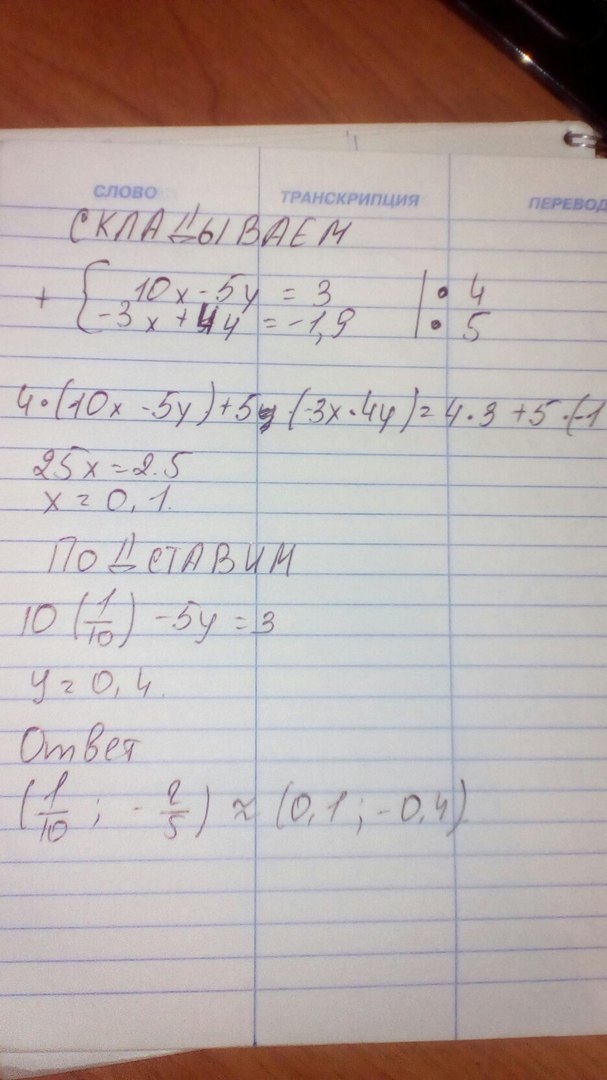 СЛОВО ТРАНСКРИПЦИЯ ПЕРЕВОД
СКЛАДЫВАЕМ
+ { 10x - 5y = 3 | • 4
-3x + 4y = -1,9 | • 5
4·(10x - 5y) + 5·(-3x·4y) = 4·3 + 5·(-1
25x = 2.5
x = 0,1.
ПОДСТАВИМ
10 (1/10) - 5y = 3
y = 0,4.
Ответ
(1/10 ; - 2/5) ≈ (0,1 ; -0,4)